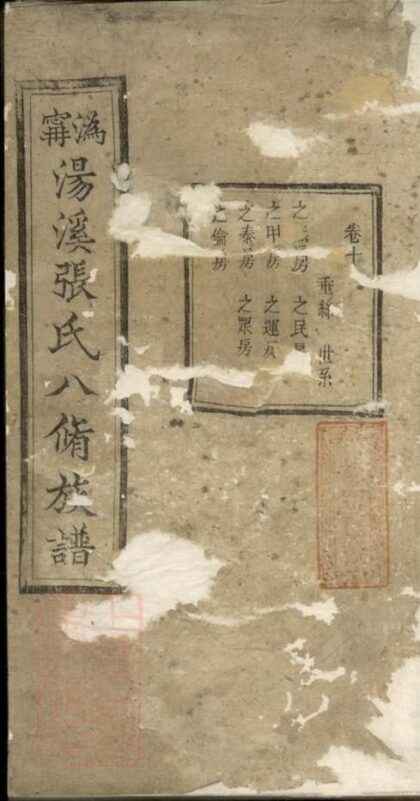 卷十
垂絲 世系
之 房 之民
之甲房 之運
之泰房 之眾房
之倫房
溈甯
湯溪張氏八脩族譜